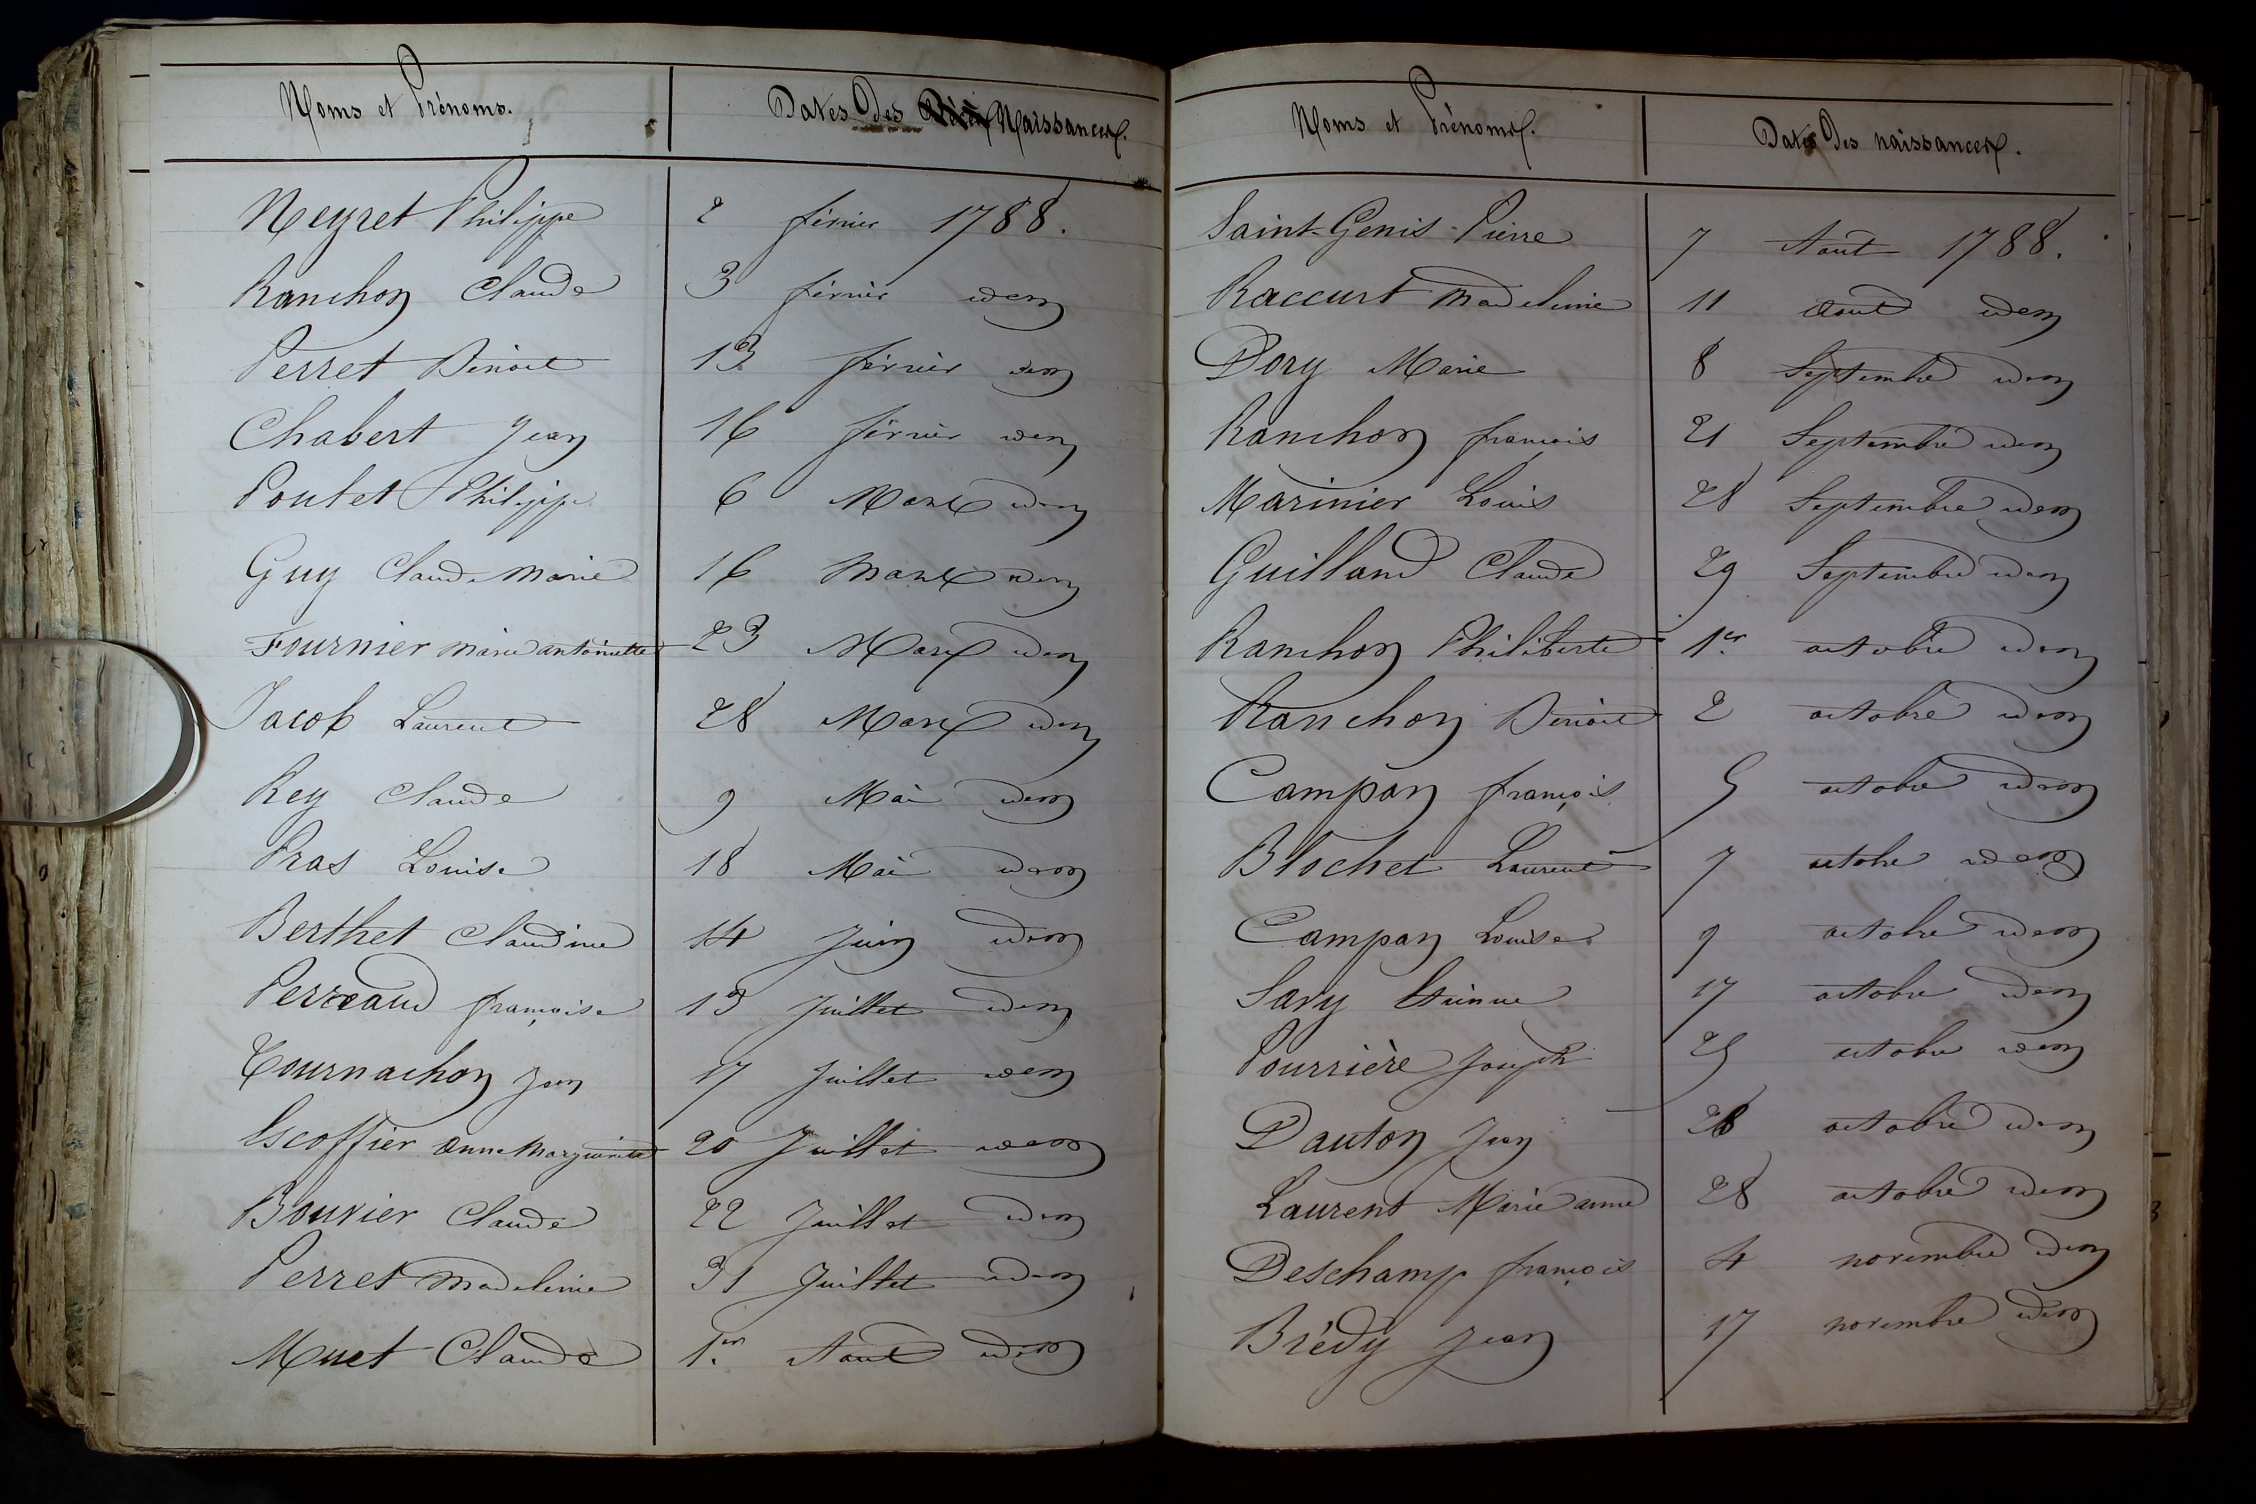 Noms et Prénoms. Dates Des Naissances.
Neyret Philippe 2 février 1788.
Ranchon Claude 3 février idem
Perret Benoit 13 février idem
Chabert Jean 16 février idem
Poulet Philippe 6 Mars idem
Guy Claude Marie 16 Mars idem
Fournier Marie antoinette 23 Mars idem
Jacob Laurent 28 Mars idem
Rey Claude 9 Mai idem
Pras Louise 18 Mai idem
Berthet Claudine 14 Juin idem
Perreaud françoise 13 Juillet idem
Tournachon Jean 17 Juillet idem
Escoffier anne Marguerite 20 Juillet idem
Bouvier Claude 22 Juillet idem
Perret Madeleine 31 Juillet idem
Muet Claude 1er Aout idem
Noms et Prénoms. Dates Des naissances.
Saint-Genis Pierre 7 Aout 1788.
Raccurt Madeleine 11 Aout idem
Dory Marie 8 Septembre idem
Ranchon francois 21 Septembre idem
Marinier Louis 28 Septembre idem
Guilland Claude 29 Septembre idem
Ranchon Philiberte 1er octobre idem
Ranchon Benoit 2 octobre idem
Campan françois 5 octobre idem
Blochet Laurent 7 octobre idem
Campan Louise 9 octobre idem
Sary Etienne 17 octobre idem
Pourrière Joseph 25 octobre idem
Dauton Jean octobre idem
Laurent Marie anne 28 octobre idem
Deschamp françois 4 novembre idem
Brédy Jean 17 novembre idem